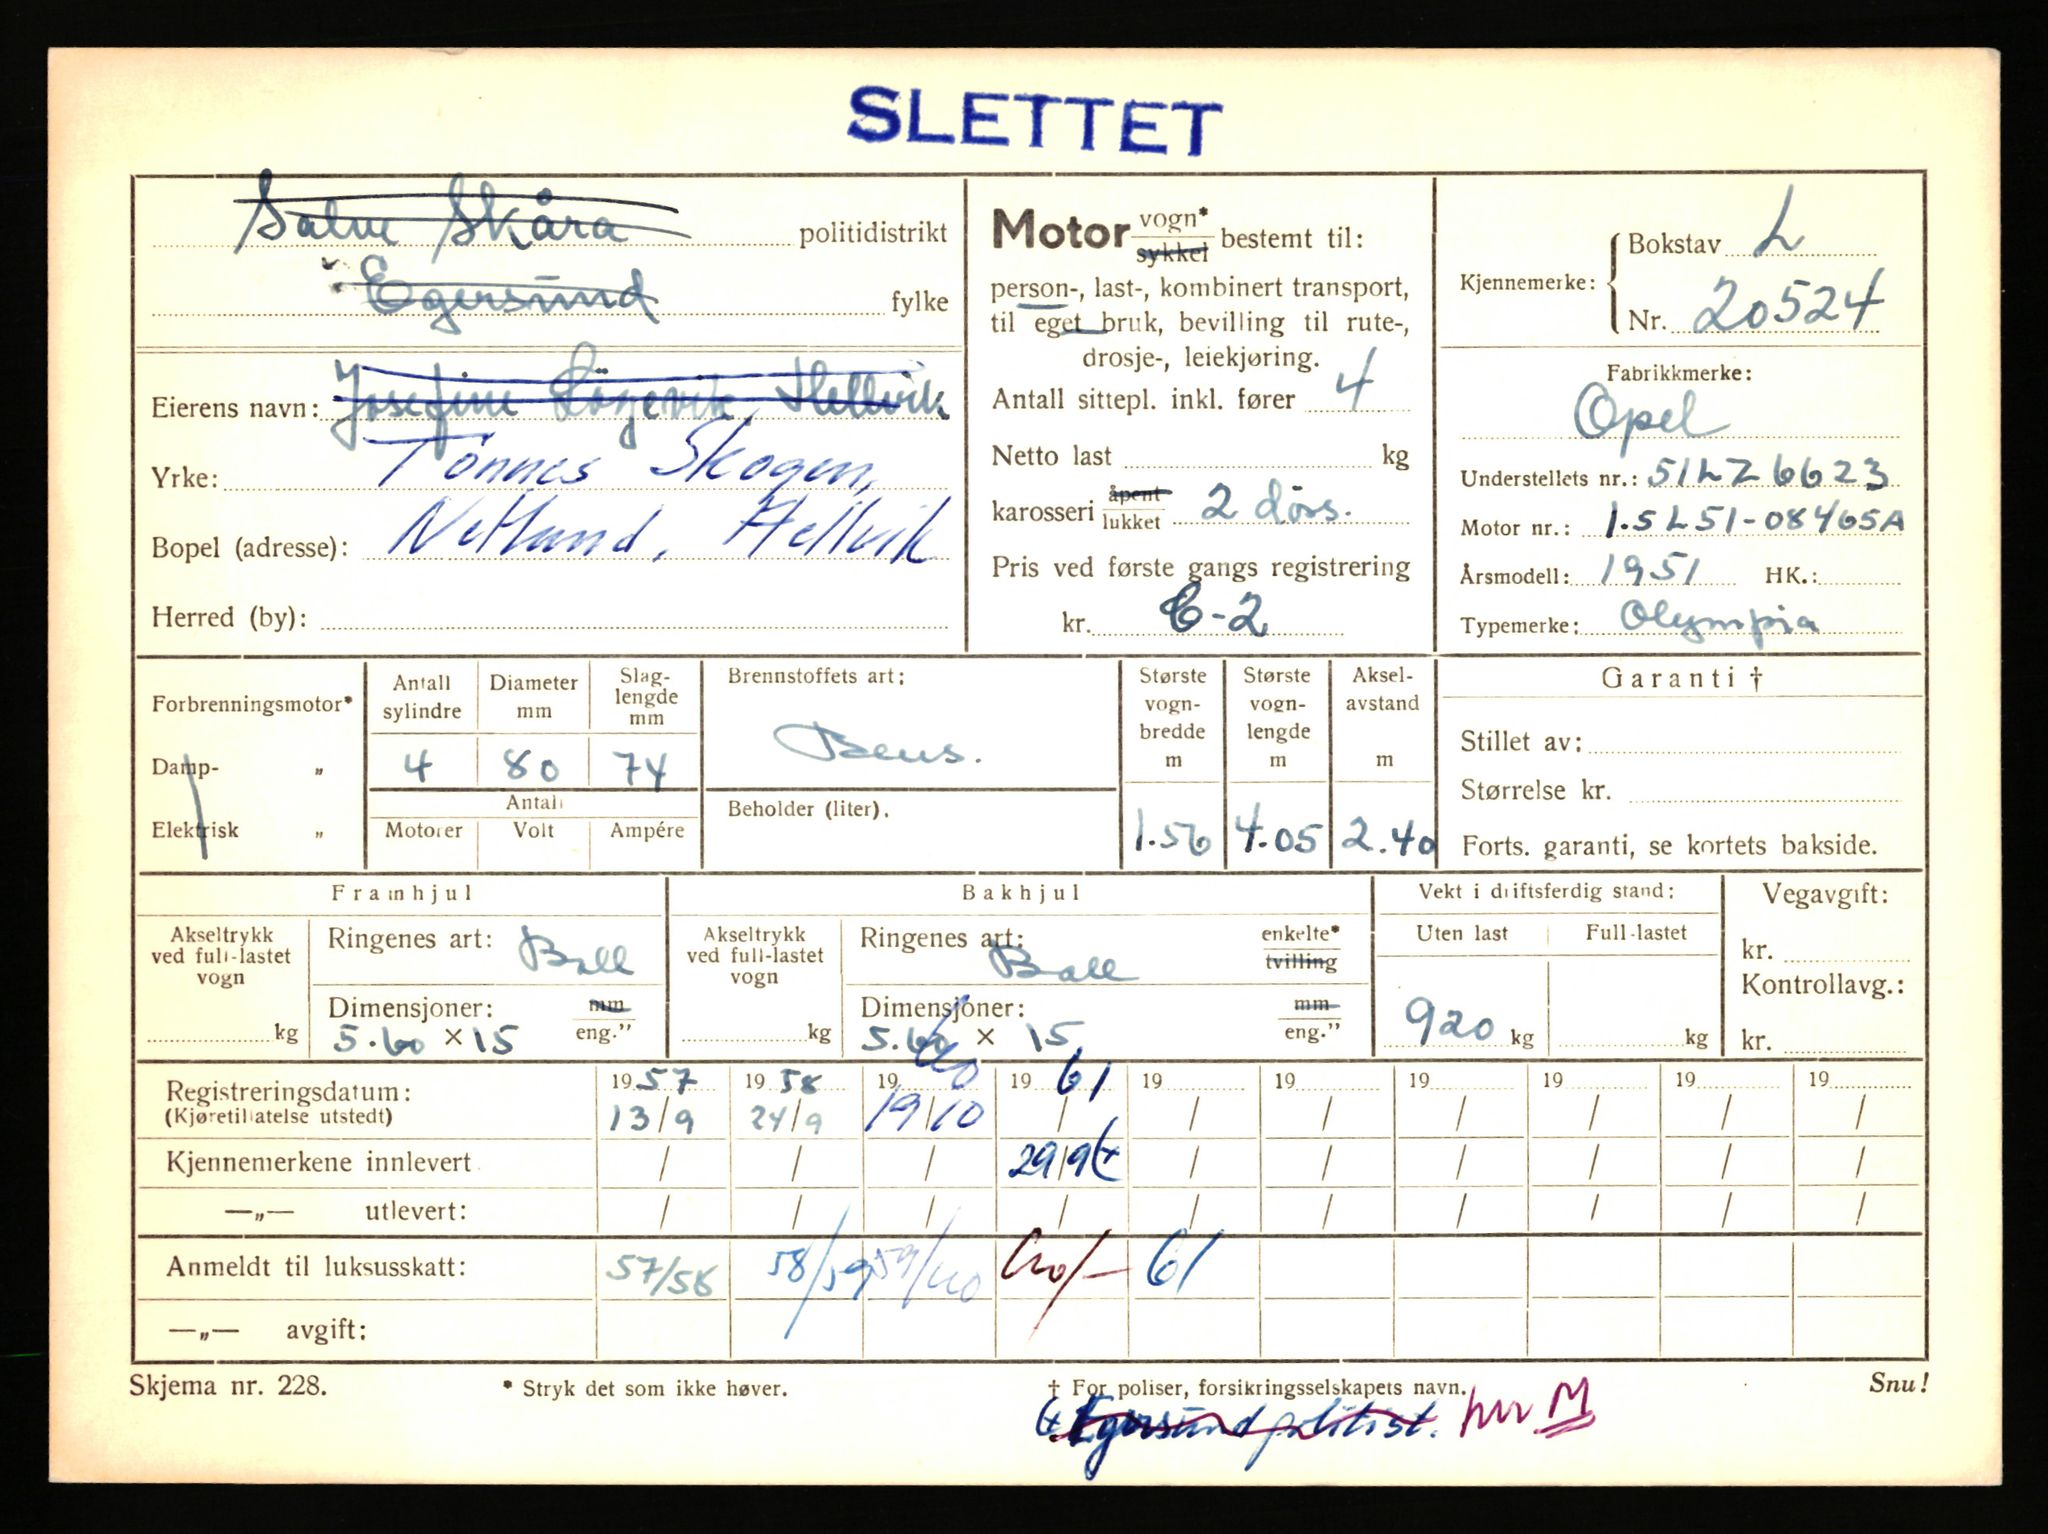 SLETTET
Salve Skåra politidistrikt
Egersund fylke
Eierens navn: Josefine Lögevik, Hellvik
Yrke: Tönnes Skogen,
Bopel (adresse): Netland, Hellvik
Herred (by):
Motor vogn* sykkel bestemt til:
person-, last-, kombinert transport,
til eget bruk, bevilling til rute-,
drosje-, leiekjøring.
Antall sittepl. inkl. fører 4
Netto last kg
karosseri åpent lukket 2 dörs.
Pris ved første gangs registrering
kr. C-2
Kjennemerke: Bokstav L
Nr. 20524
Fabrikkmerke:
Opel
Understellets nr.: 51LZ6623
Motor nr.: 1.5L51-08465A
Årsmodell: 1951 HK.:
Typemerke: Olympia
Forbrenningsmotor*
Damp- „
Elektrisk „
Antall sylindre Diameter mm Slag-lengde mm
4 80 74
Antall
Motorer Volt Ampére
Brennstoffets art:
Bens.
Beholder (liter).
Største vogn-bredde m Største vogn-lengde m Aksel-avstand m
1.56 4.05 2.40
Garanti †
Stillet av:
Størrelse kr.
Forts. garanti, se kortets bakside.
Framhjul
Akseltrykk ved full-lastet vogn
kg
Ringenes art: Ball
Dimensjoner: mm
5.60 × 15 eng.”
Bakhjul
Akseltrykk ved full-lastet vogn
kg
Ringenes art: Ball enkelte* tvilling
Dimensjoner: mm
5.60 × 15 eng.”
Vekt i driftsferdig stand:
Uten last Full-lastet
920 kg kg
Vegavgift:
kr.
Kontrollavg.:
kr.
Registreringsdatum: 1957 1958 1960 1961 19 19 19 19 19 19
(Kjøretillatelse utstedt) 13/9 24/9 19/10 / / / / / / /
Kjennemerkene innlevert / / / 29/9 / / / / / /
—„— utlevert: / / / / / / / / / /
Anmeldt til luksusskatt: 57/58 58/59 59/60 60/- 61
—„— avgift:
Skjema nr. 228. * Stryk det som ikke høver. † For poliser, forsikringsselskapets navn. Snu!
Egersund politist. M